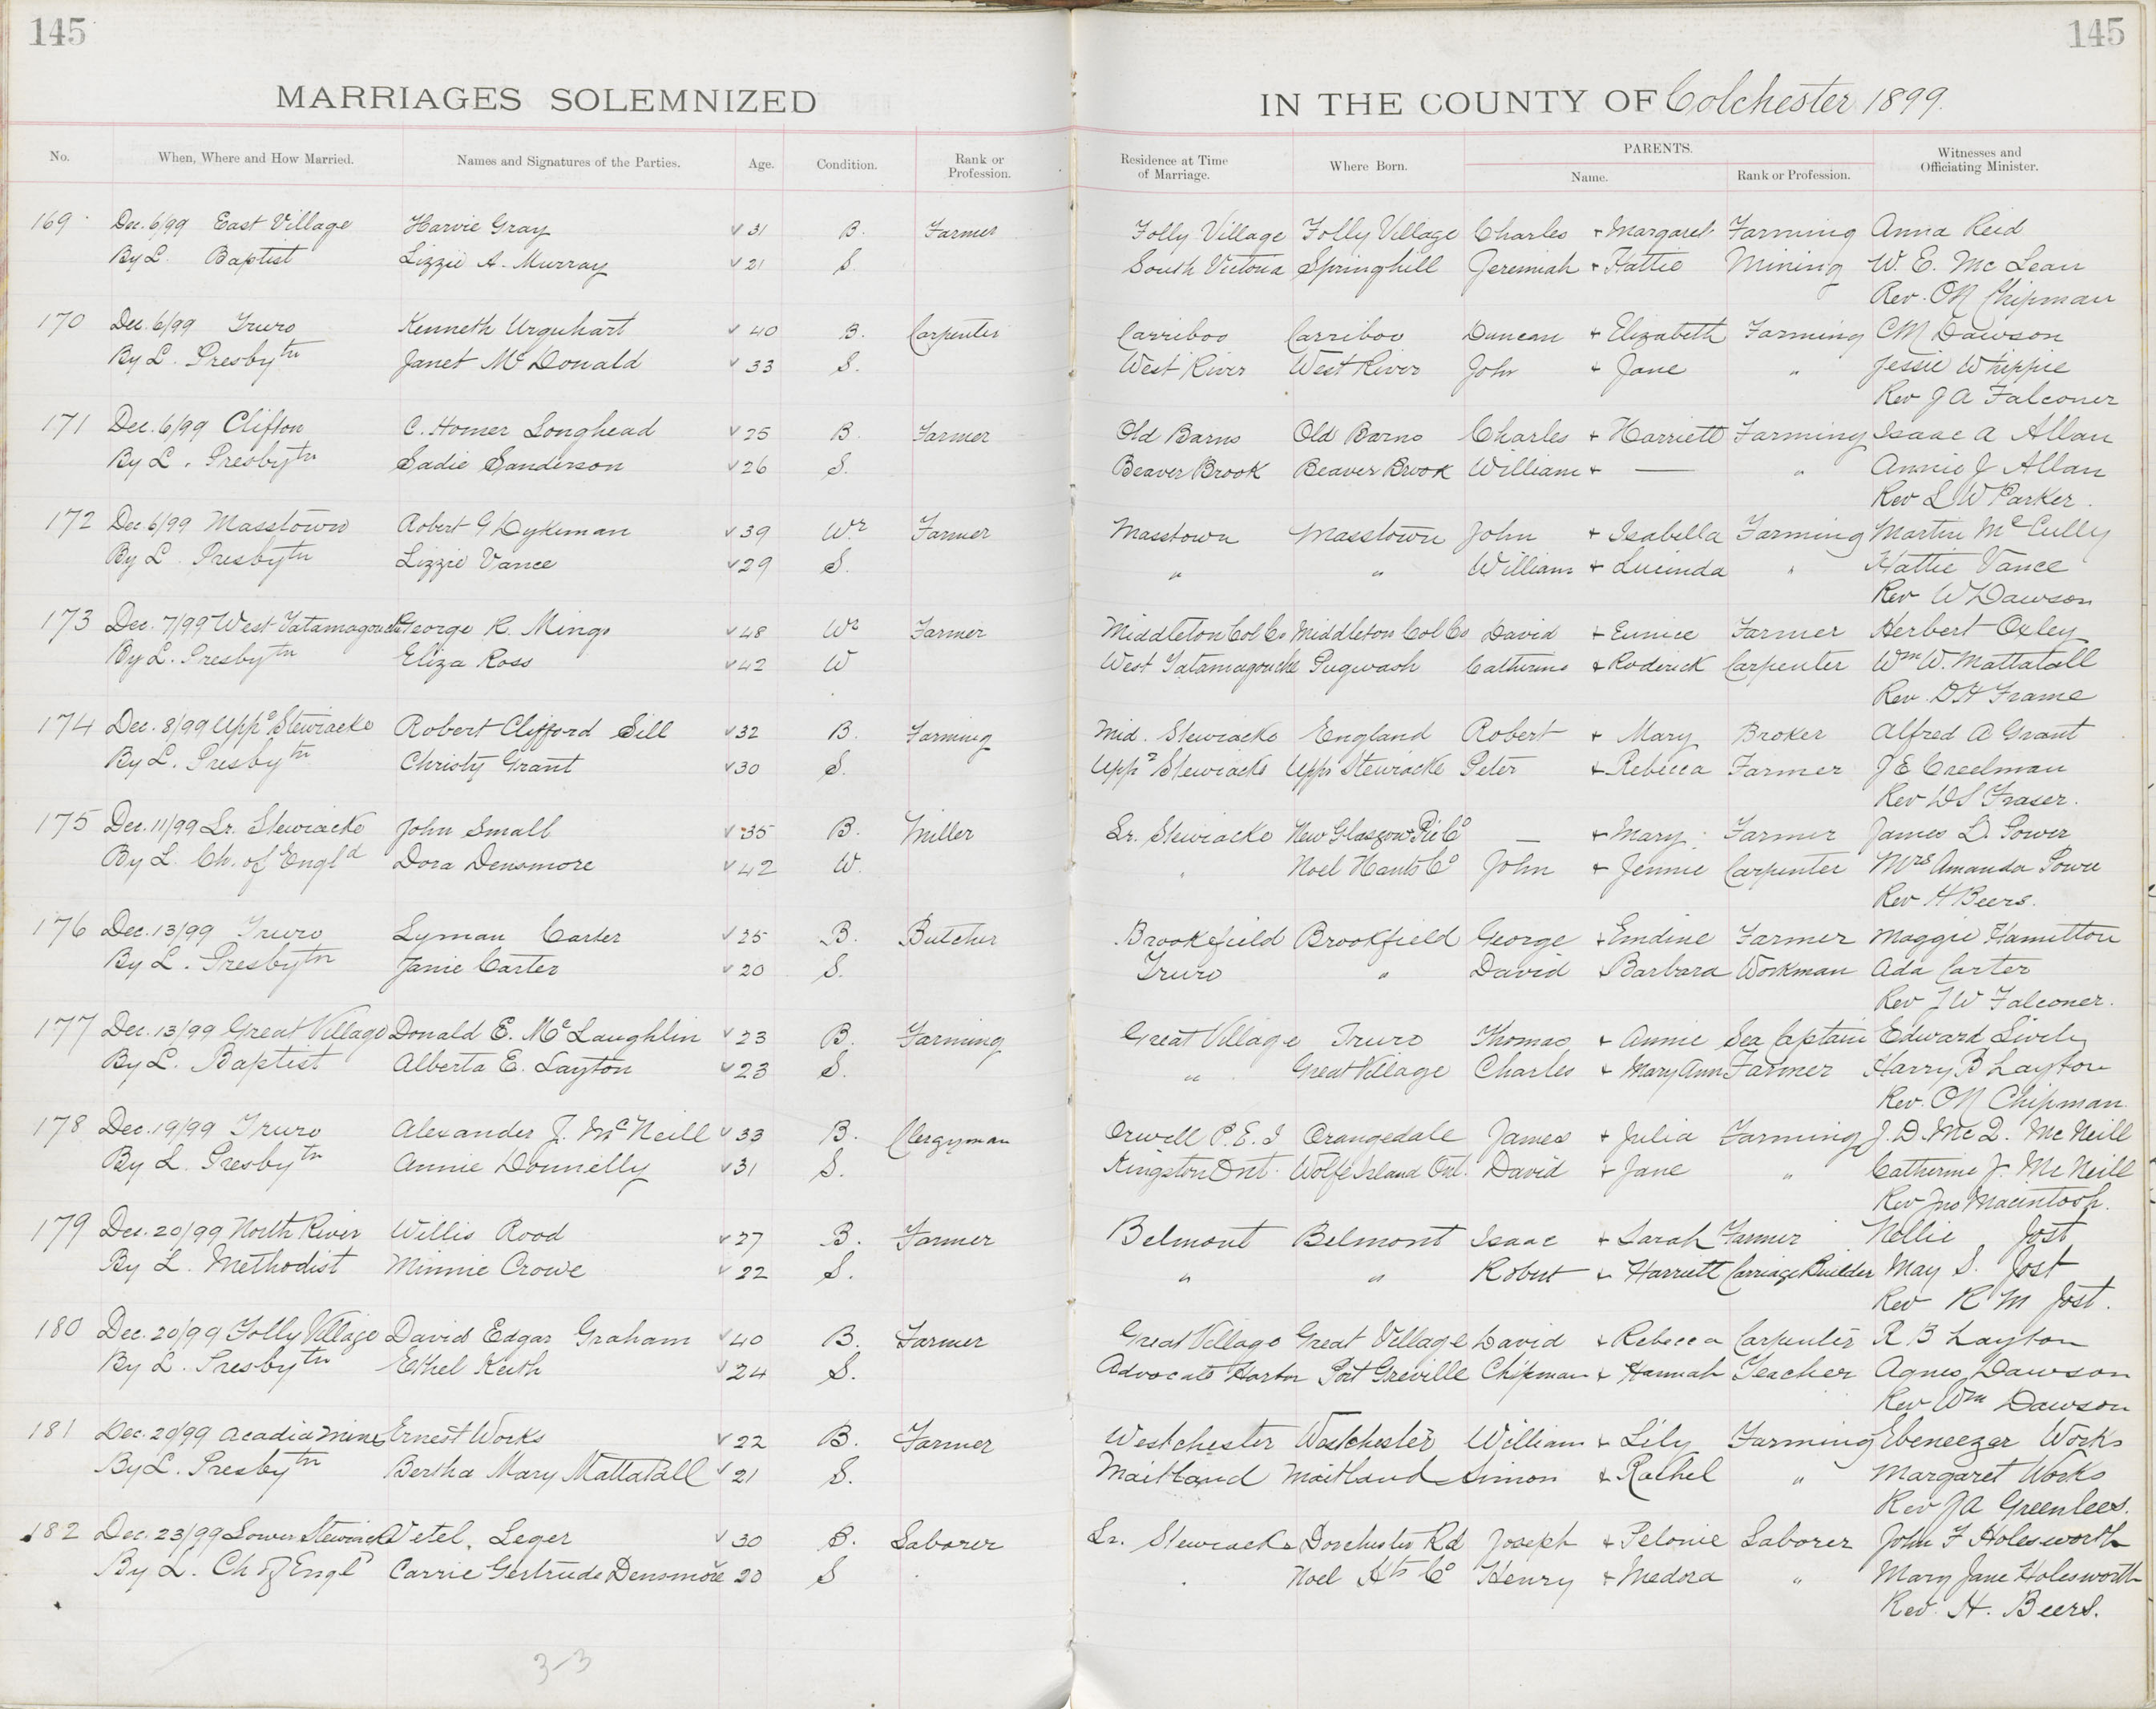 145 145
MARRIAGES SOLEMNIZED IN THE COUNTY OF Colchester 1899.
No. When, Where and How Married. Names and Signatures of the Parties. Age. Condition. Rank or Profession. Residence at Time of Marriage. Where Born. PARENTS. Name. Rank or Profession. Witnesses and Officiating Minister.
169 Dec. 6/99 East Village Harvie Gray v 31 B. Farmer Folly Village Folly Village Charles + Margaret Farming Anna Reid
By L. Baptist Lizzie A. Murray v 21 S. South Victoria Springhill Jeremiah + Hattie Mining W. E. McLean
Rev. O N Chipman
170 Dec. 6/99 Truro Kenneth Urquhart v 40 B. Carpenter Carriboo Carriboo Duncan + Elizabeth Farming C M Dawson
By L. Presbytn Janet McDonald v 33 S. West River West River John + Jane " Jessie Whippie
Rev J A Falconer
171 Dec. 6/99 Clifton C. Homer Longhead v 25 B. Farmer Old Barns Old Barns Charles + Harriett Farming Isaac A Allan
By L. Presbytn Sadie Sanderson v 26 S. Beaver Brook Beaver Brook William + — " Annie J Allan
Rev L W Parker.
172 Dec 6/99 Masstown Robert G Dykeman v 39 Wr Farmer Masstown Masstown John + Isabella Farming Martin McCully
By L Presbytn Lizzie Vance v 29 S. " " William + Lucinda " Hattie Vance
Rev W Dawson
173 Dec. 7/99 West Tatamagouche George R. Mingo v 48 Wr Farmer Middleton Col Co Middleton Col Co David + Eunice Farmer Herbert Oxley
By L. Presbytn Eliza Ross v 42 W West Tatamagouche Pugwash Catherine + Roderick Carpenter Wm W. Mattatall
Rev. D H Frame
174 Dec. 8/99 Uppr Stewiacke Robert Clifford Sill v 32 B. Farming Mid. Stewiacke England Robert + Mary Broker Alfred A Grant
By L. Presbytn Christy Grant v 30 S. Uppr Stewiacke Uppr Stewiacke Peter + Rebecca Farmer J E Creelman
Rev D S Fraser.
175 Dec. 11/99 Lr. Stewiacke John Small v 35 B. Miller Lr. Stewiacke New Glasgow Pic Co — + Mary Farmer James D. Power
By L. Ch. of Engld Dora Densmore v 42 W. " Noel Hants Co John + Jennie Carpenter Mrs Amanda Power
Rev H Beers.
176 Dec. 13/99 Truro Lyman Carter v 25 B. Butcher Brookefield Brookfield George + Emdine Farmer Maggie Hamilton
By L. Presbytn Janie Carter v 20 S. Truro " David + Barbara Workman Ada Carter
Rev J W Falconer.
177 Dec. 13/99 Great Village Donald E. McLaughlin v 23 B. Farming Great Village Truro Thomas + Annie Sea Captain Edward
By L. Baptist Alberta E. Layton v 23 S. " Great Village Charles + Mary Ann Farmer Harry B Layton
Rev. O N Chipman
178 Dec. 19/99 Truro Alexander J. McNeill v 33 B. Clergyman Orwell P.E.I Orangedale James + Julia Farming J. D. McL. McNeill
By L. Presbytn Annie Donnelly v 31 S. Kingston Ont. Wolfe Island Ont. David + Jane " Catherine J. McNeill
Rev Jno Macintosh.
179 Dec. 20/99 North River Willis Rood v 27 B. Farmer Belmont Belmont Isaac + Sarah Farmer Nellie Jost
By L. Methodist Minnie Crowe v 22 S. " " Robert + Harriett Carriage Builder May S. Jost
Rev R M Jost.
180 Dec. 20/99 Folly Village David Edgar Graham v 40 B. Farmer Great Village Great Village David + Rebecca Carpenter R B Layton
By L. Presbytn Ethel Keith v 24 S. Advocate Harbor Port Greville Chipman + Hannah Teacher Agnes Dawson
Rev Wm Dawson
181 Dec. 20/99 Acadia Mines Ernest Works v 22 B. Farmer Westchester Westchester William + Lily Farming Ebeneezer Works
By L. Presbytn Bertha Mary Mattatall v 21 S. Maitland Maitland Simon + Rachel " Margaret Works
Rev J A Greenlees.
182 Dec. 23/99 Lower Stewiacke Vetel. Leger v 30 B. Laborer Lr. Stewiacke Dorchester Rd Joseph + Pelonie Laborer John F Holesworth
By L. Ch of Engld Carrie Gertrude Densmore v 20 S " Noel Hts Co Henry + Medora " Mary Jane Holesworth
Rev. H. Beers.
3-3